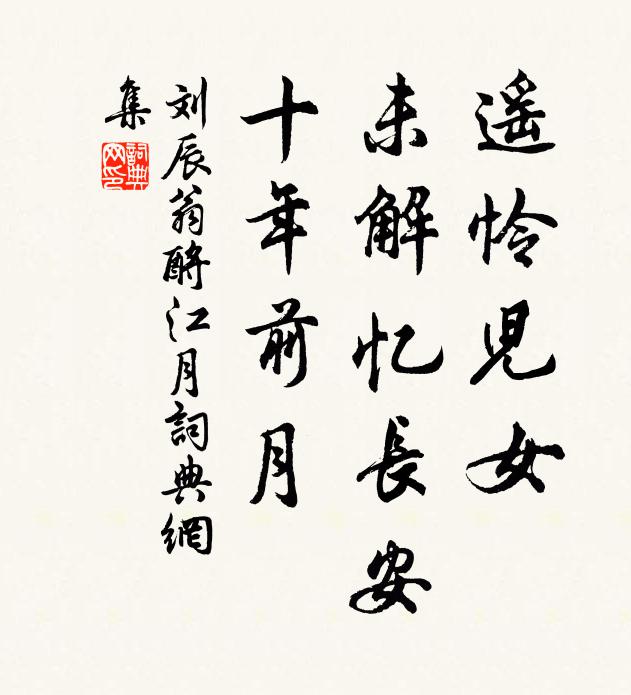 遥怜児女
未解忆長安
十年前月
刘辰翁酹江月詞典網
集
詞典网印